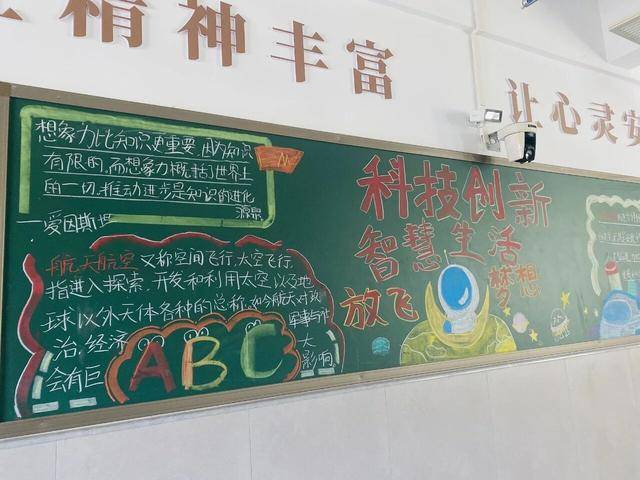 精神丰富
让心灵安
想象力比知识更重要,因为知识
有限的,而想象力概括世界上
的一切,推动进步是知识的进化
源泉
——爱因斯坦
航天航空 又称空间飞行,太空飞行,
指进入探索、开发和利用太空以及地
球以外天体各种的总称,如今航天对政
治,经济
军事与社
会有巨
大
影响
ABC
科技创新
智慧生活
放飞
梦想